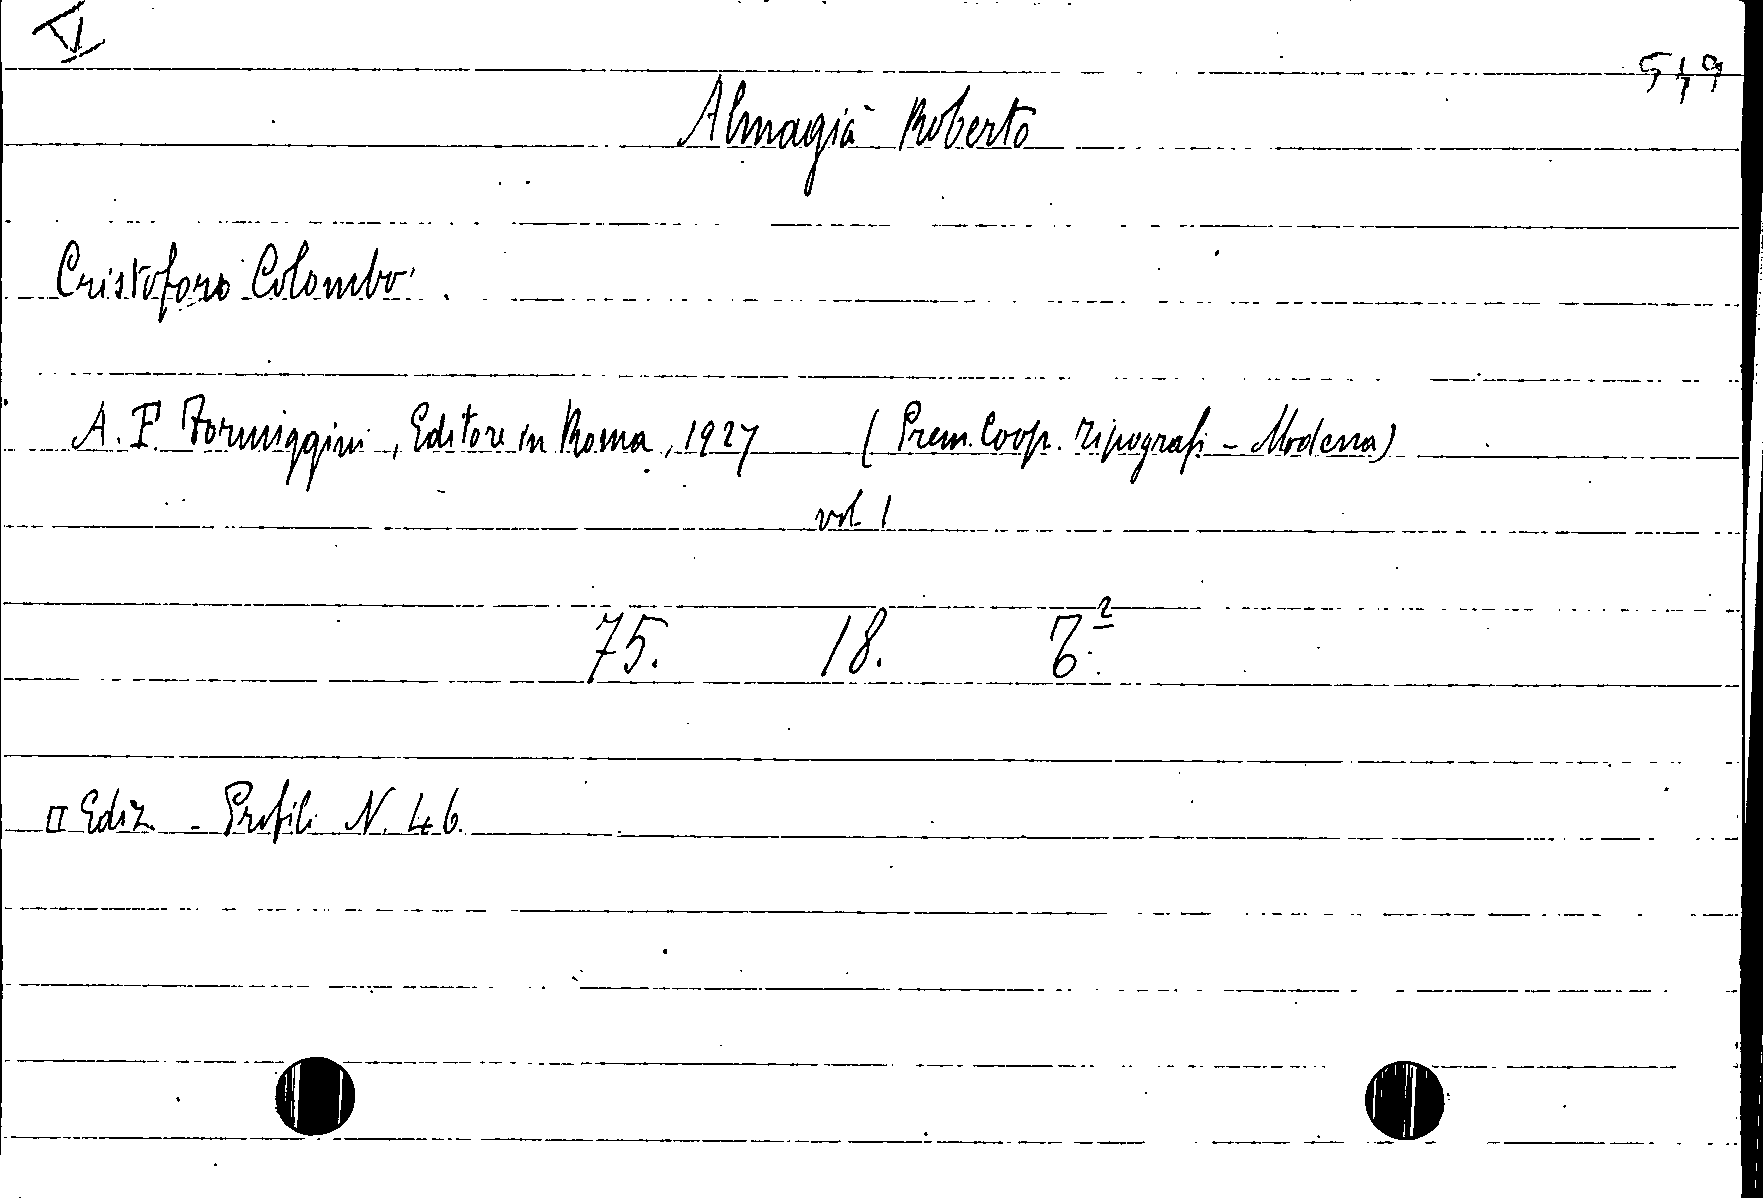 V
549
Almagià Roberto
Cristoforo Colombo.
A. F. Formiggini, Editore in Roma, 1927 (Prem. Coop. Tipografi - Modena)
vol 1
75. 18. 6.²
II Ediz. - Profili N. 46.